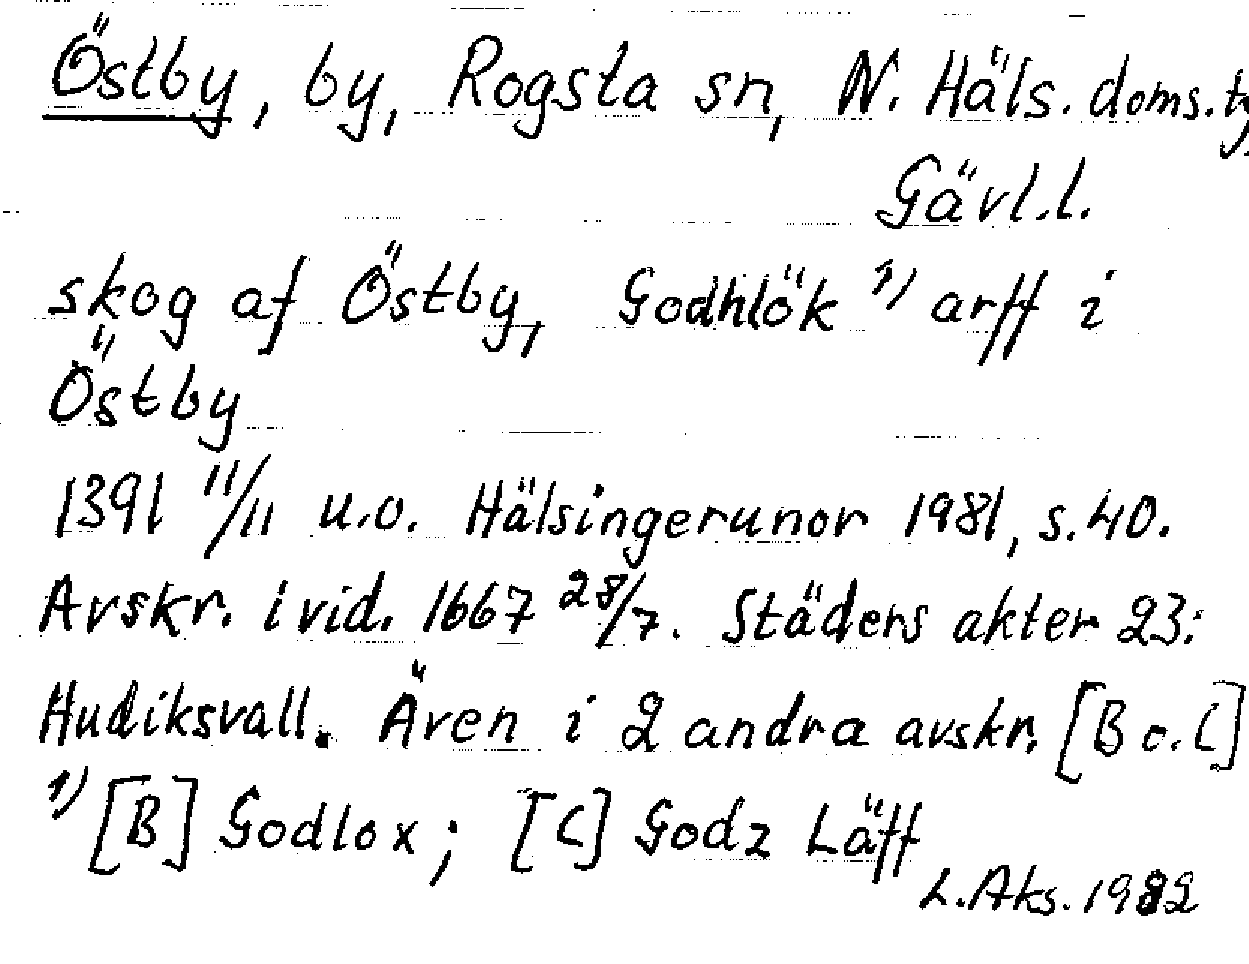 Östby, by, Rogsta sn, N. Häls. doms.
Gävl.l.
skog af Östby, Godhlök ¹⁾ arff i
Östby
1391 11/11 u.o. Hälsingerunor 1981, s.40.
Avskr. i vid. 1667 28/7. Städers akter 23:
Hudiksvall. Även i 2 andra avskr. [B o. C]
¹⁾ [B] Godlox; [C] Godz Läff
L.Aks. 1982